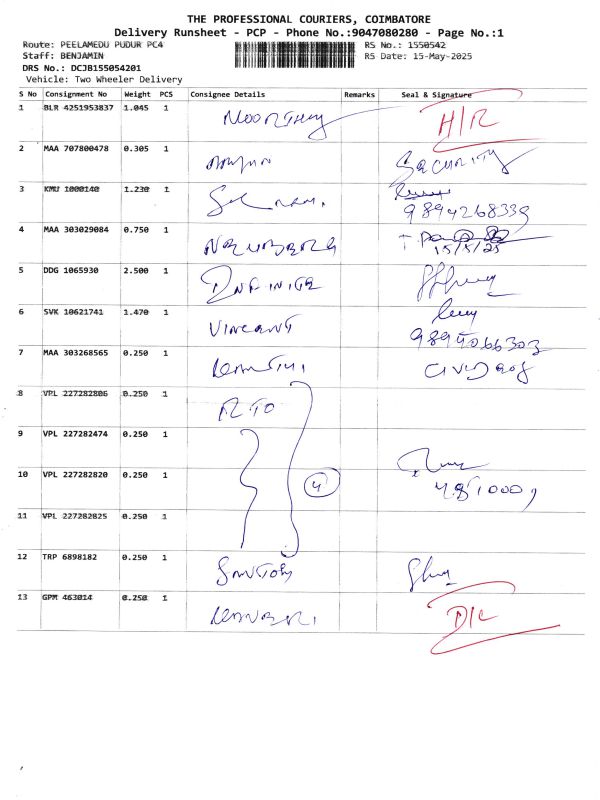 THE PROFESSIONAL COURIERS, COIMBATORE
Delivery Runsheet - PCP - Phone No.:9047080280 - Page No.:1
Route: PEELAMEDU PUDUR PC4 RS No.: 1550542
Staff: BENJAMIN RS Date: 15-May-2025
DRS No.: DCJB155054201
Vehicle: Two Wheeler Delivery
S No Consignment No Weight PCS Consignee Details Remarks Seal & Signature
1 BLR 4251953837 1.045 1 MOORTHY H/R
2 MAA 707800478 0.305 1 SECURITY
3 KMU 1000140 1.230 1 9894268339
4 MAA 303029084 0.750 1 15/5/25
5 DDG 1065930 2.500 1 INFINITE
6 SVK 10621741 1.470 1 VINCENT
7 MAA 303268565 0.250 1
8 VPL 227282806 0.250 1 RTO
9 VPL 227282474 0.250 1
10 VPL 227282820 0.250 1 4
11 VPL 227282825 0.250 1
12 TRP 6898182 0.250 1 SANTOSH
13 GPM 463014 0.250 1 D/L